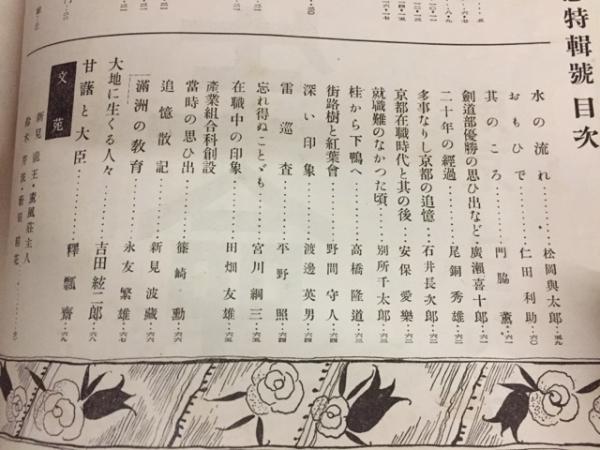 特輯號 目次
水の流れ・・・松岡與太郎・・五九
おもひで・・・仁田利助・・六〇
其のころ・・・門脇薫・・六一
劍道部優勝の思ひ出など・・廣瀬喜十郎・・六一
二十年の經過・・・尾銅秀雄・・六二
多事なりし京都の追憶・・・石井長次郎・・六二
京都在職時代と其の後・・・安保愛樂・・六三
就職難のなかつた頃・・・別所千太郎・・六三
桂から下鴨へ・・・高橋隆道・・六三
街路樹と紅葉會・・・野間守人・・六四
深い印象・・・渡邊英男・・六四
雷巡査・・・平野照・・六四
忘れ得ぬことゞも・・・宮川綱三・・六五
在職中の印象・・・田畑友雄・・六五
產業組合科創設
當時の思ひ出・・・篠崎勳・・六六
追憶散記・・・新見波藏・・六六
滿洲の教育・・・永友繁雄・・六七
大地に生くる人々・・・吉田絃二郎・・六八
甘藷と大臣・・・釋瓢齋・・六九
文苑